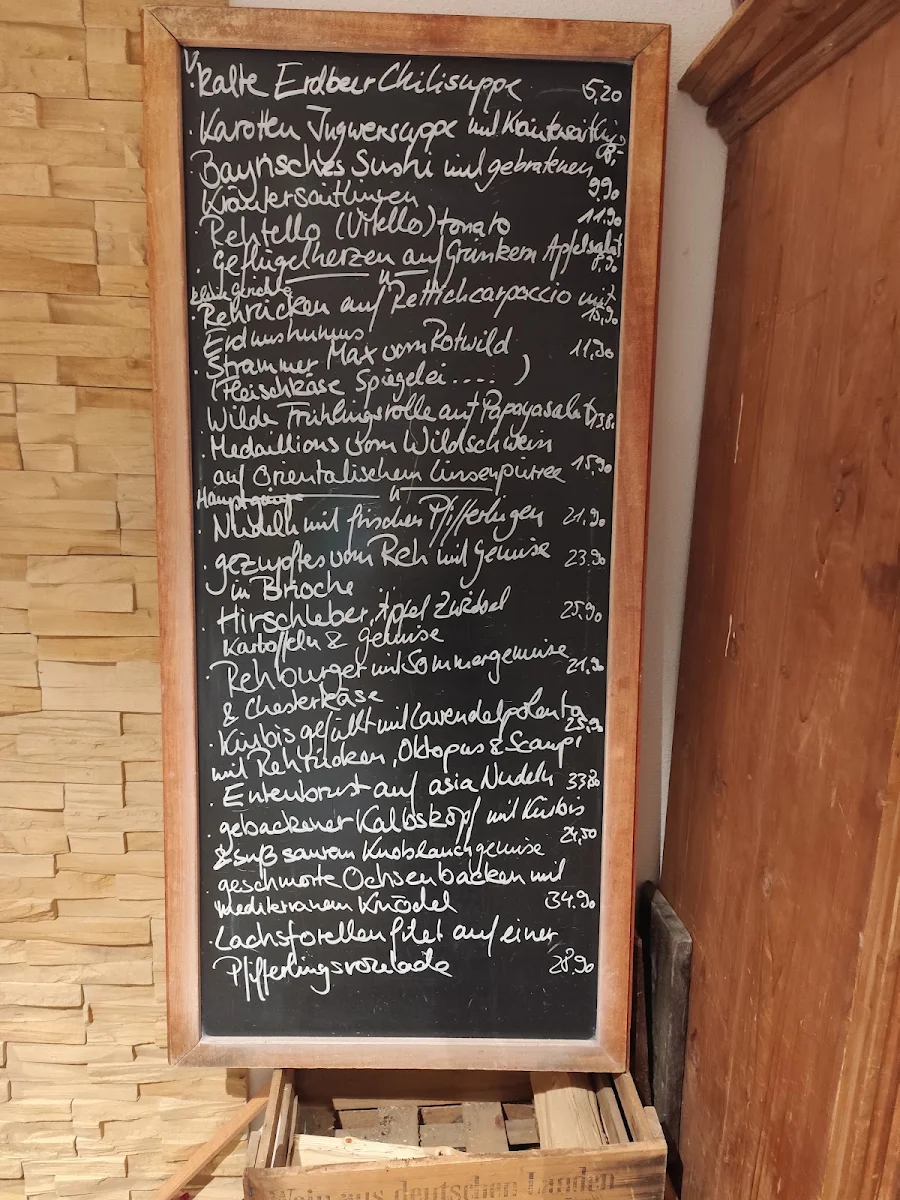 V.
· Kalte Erdbeer Chilisuppe 5,20
· Karotten Ingwersuppe mit Kräuterseitling 8,-
Bayrisches Sushi mit gebratenen 9,90
Kräutersaitlingen
· Rehtello (Vitello) tonato 11.90
· Geflügelherzen auf Grünkern Apfelsalat 8,90
kleine Gerichte
· Rehrücken auf Rettichcarpaccio mit 15,90
Erdnushumus
· Strammer Max vom Rotwild 11,90
(Fleischkäse Spiegelei .... )
Wilde Frühlingsrolle auf Papayasalat 13,80
· Medaillions vom Wildschwein
auf Orientalischem Linsenpüree 15,90
Hauptgänge
· Nudeln mit frischen Pfifferlingen 21,90
· gezupftes vom Reh mit Gemüse 23,90
in Brioche
· Hirschleber, Apfel Zwiebel 25,90
Kartoffeln & Gemüse
· Rehburger mit Sommergemüse 21,90
& Chesterkäse
· Kürbis gefüllt mit Lavendelpolenta 25,90
mit Rehrücken, Oktopus & Scampi
· Entenbrust auf asia Nudeln 33,80
· gebackener Kalbskopf mit Kürbis
& süß sauren Knoblauchgemüse 24,50
· geschmorte Ochsenbacken mit
mediterranem Knödel 34.90
· Lachsforellenfilet auf einer
Pfifferlingsroulade 28,90
Wein aus deutschen Landen